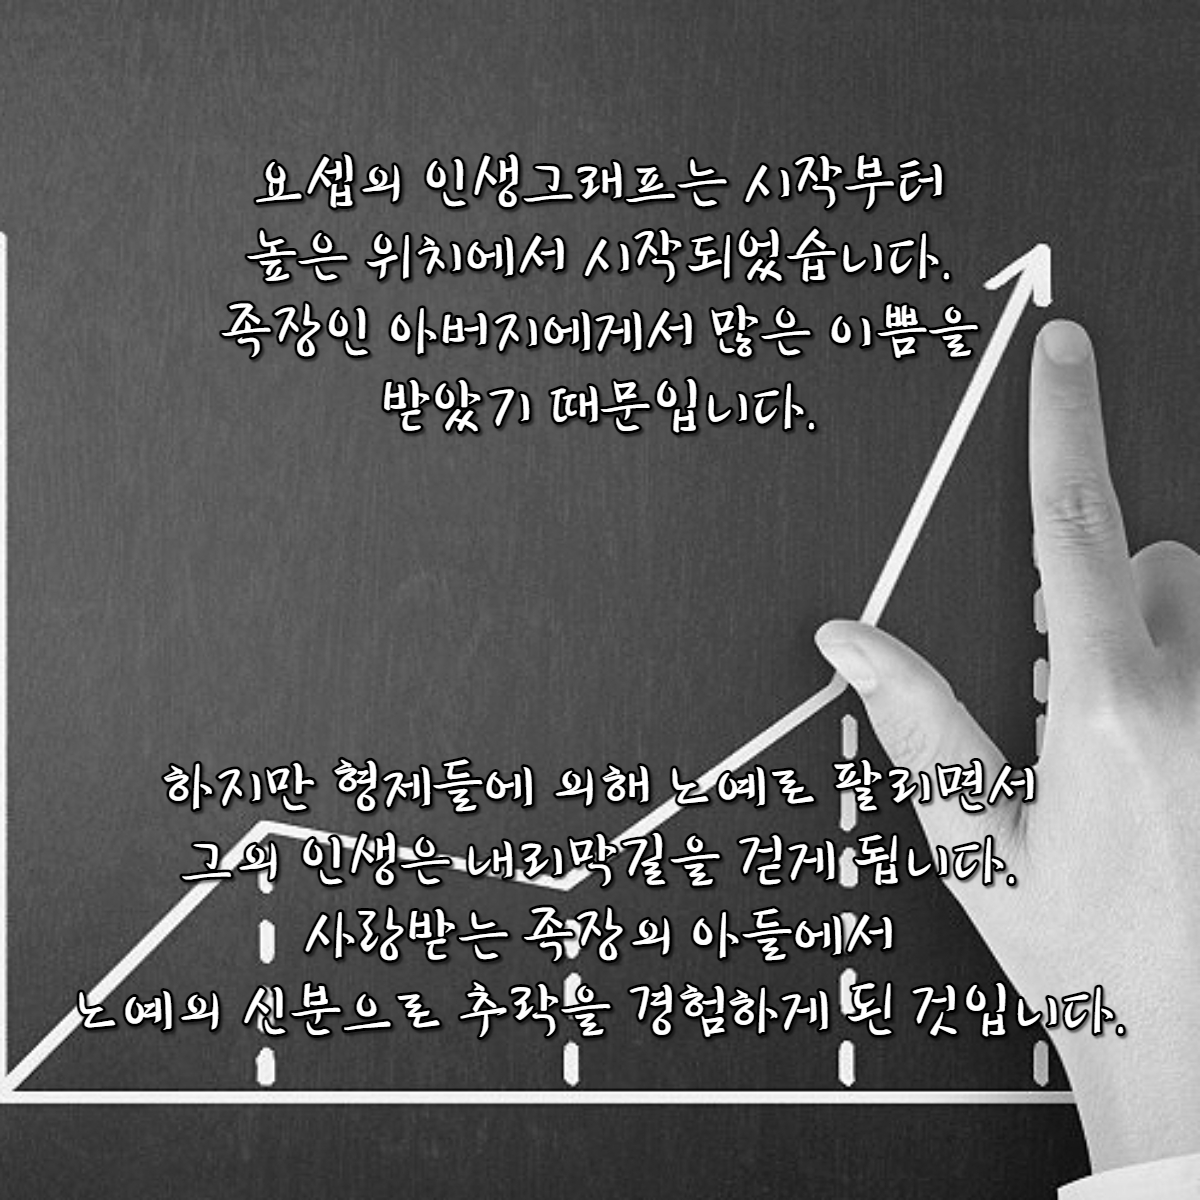 요셉의 인생그래프는 시작부터
높은 위치에서 시작되었습니다.
족장인 아버지에게서 많은 이쁨을
받았기 때문입니다.
하지만 형제들에 의해 노예로 팔리면서
그의 인생은 내리막길을 걷게 됩니다.
사랑받는 족장의 아들에서
노예의 신분으로 추락을 경험하게 된 것입니다.